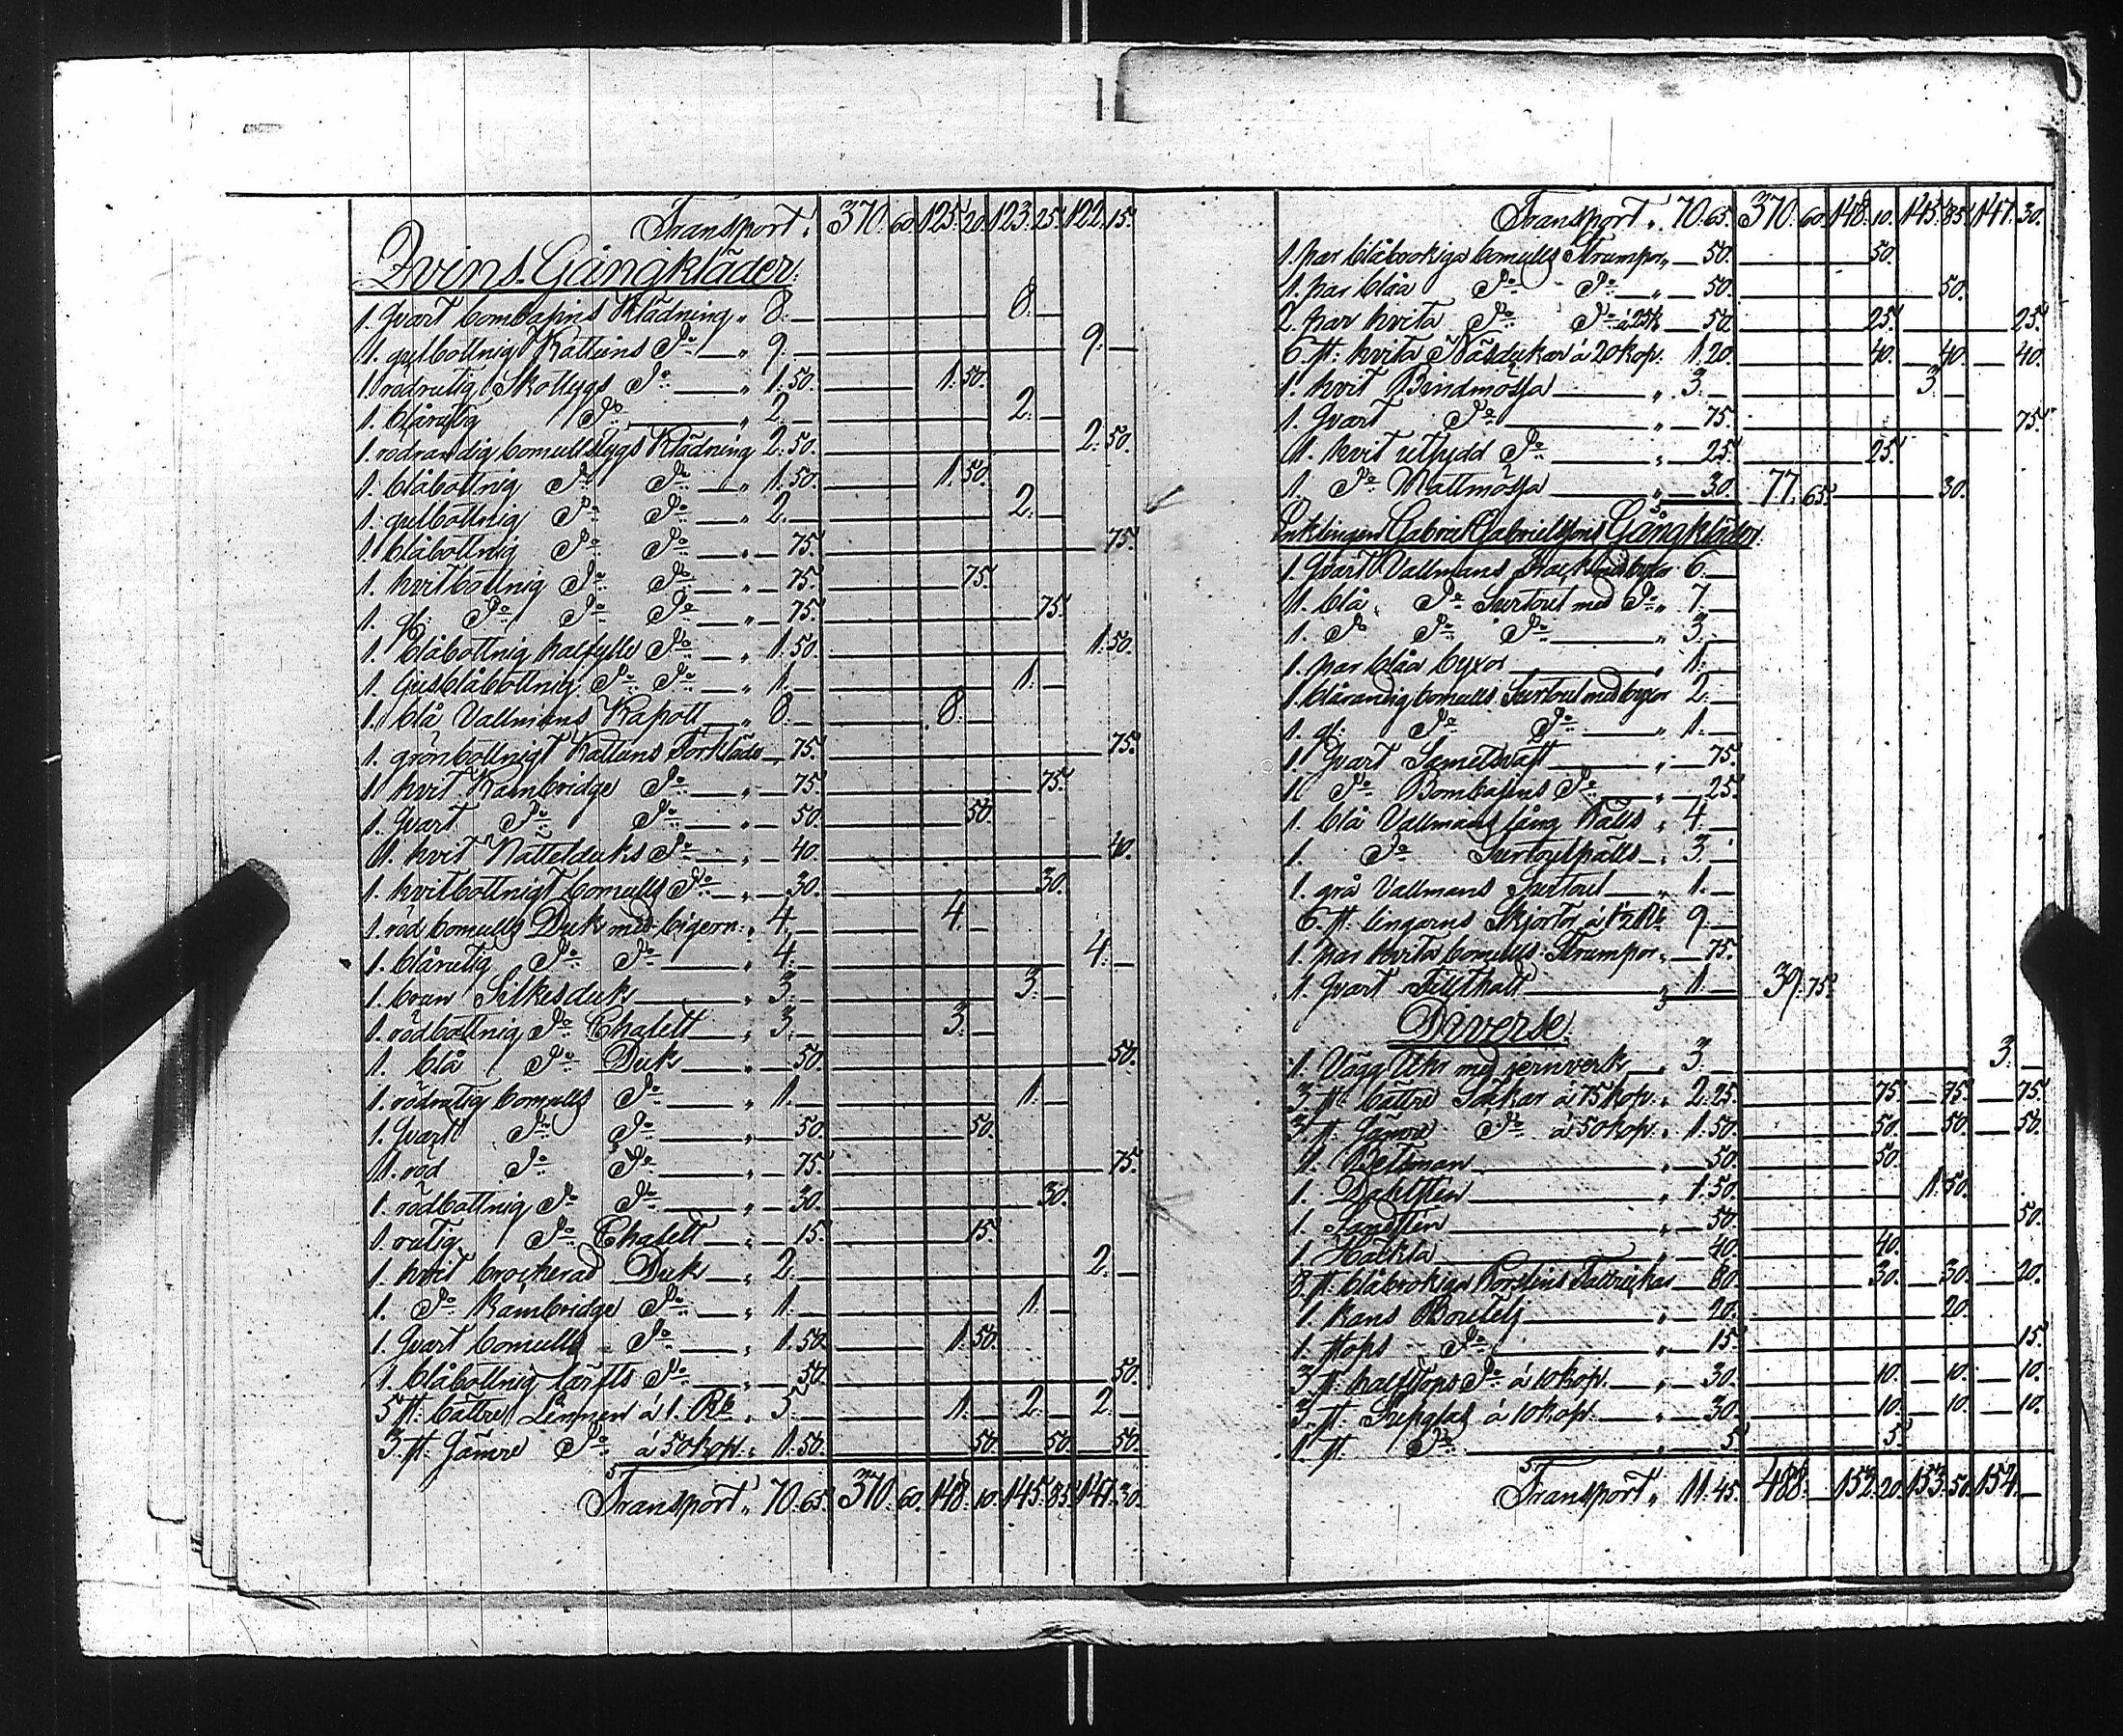 Transport. 370. 60. 125. 20. 123. 25. 122. 15.
Qvins Gångkläder:
1. svart bombasins Klädning „ 8. — 8. —
1. gulbottnig Kattuns Do „ 9. — 9. —
1. rödrutig Skottygs Do „ 1. 50. 1. 50.
1. blårutig Do „ 2. — 2. —
1. rödrandig bomullstygs Klädning 2. 50. 2. 50.
1. blåbottnig Do Do „ 1. 50. 1. 50.
1. gulbottnig Do Do „ 2. — 2. —
1. blåbottnig Do Do „ — 75. 75.
1. hvitbottnig Do Do „ — 75. 75.
1. gl: Do Do Do „ — 75. 75.
1. blåbottnig halfylle Do „ 1. 50. 1. 50.
1. ljusblåbottnig Do Do „ 1. — 1. —
1. blå Vallmans Kapott „ 8. — 8. —
1. grönbottnigt Kattuns Förkläde — 75. 75.
1. hvit Kambridge Do „ — 75. 75.
1. svart Do Do „ — 50. 50.
1. hvit Nättelduks Do „ — 40. 40.
1. hvitbottnigt bomulls Do „ — 30. 30.
1. röd bomulls Duk med bigarn: „ 4. — 4. —
1. blårutig Do Do „ 4. — 4. —
1. brun Silkesduk „ 3. — 3. —
1. rödbottnig Do Chalett „ 3. — 3. —
1. blå Do Duk „ — 50. 50.
1. rödrutig bomulls Do „ 1. — 1. —
1. svart Do Do „ — 50. 50.
1. röd Do Do „ — 75. 75.
1. rödbottnig Do Do „ — 30. 30.
1. rutig Do Chalett „ — 15. 15.
1. hvit brocherad Duk „ 2. — 2. —
1. Do Kambridge Do „ 1. — 1. —
1. svart bomulls Do „ 1. 50. 1. 50.
1. blåbottnig lärfts Do „ — 50. 50.
5 st. bättre Linnen á 1. Rb. „ 5. — 1. — 2. — 2. —
3 st. sämre Do á 50 kop. „ 1. 50. 50. 50. 50.
Transport „ 70. 65. 370. 60. 148. 10. 145. 85. 147. 30.
Transport „ 70. 65. 370. 60. 148. 10. 145. 85. 147. 30.
1. par blåbrokiga bomulls Strumpor „ — 50. 50.
1. par blåa Do Do „ — 50. 50.
2. par hvita Do Do á 25 k — 50. 25. 25.
6 st: hvita Näsdukar á 20 kop. 1. 20. 40. 40. 40.
1. hvit Bindmössa „ 3. — 3. —
1. svart Do „ — 75. 75.
1. hvit utsydd Do „ — 25. 25.
1. Do Nattmössa „ — 30. 77. 65. 30.
Enklingen Gabriel Gabrielssons Gångkläder:
1. svart Vallmans Frack med byxor 6. —
1. blå Do Surtout med Do „ 7. —
1. Do Do Do „ 3. —
1. par blåa byxor „ 1. —
1. blårandig bomulls Surtout med byxor 2. —
1. gl: Do Do „ 1. —
1. svart Sametsväst „ — 75.
1. Do Bombasins Do „ — 25.
1. blå Vallmans lång Päls „ 4. —
1. Do Surtoutpäls „ 3. —
1. grå Vallmans Surtout „ 1. —
6 st: lingarns Skjortor á 1½ Rb. 9. —
1. par hvita bomulls Strumpor „ — 75.
1. svart Filthatt „ 1. — 39. 75.
Diverse.
1. Vägg Uhr med jernverk „ 3. — 3. —
3 st: bättre Säckar á 75 kop. „ 2. 25. 75. 75. 75.
3 st: sämre Do á 50 kop. „ 1. 50. 50. 50. 50.
1. Betsman „ — 50. 50.
1. „ 1. 50. 1. 50.
1. „ — 50. 50.
1. Häckla „ — 40. 40.
8 st. blåbrokiga Porslins Tallrickar — 80. 30. 30. 20.
1. kans Boutelj „ — 20. 20.
1. stops Do „ — 15. 15.
3 st. halfstops Do á 10 kop. „ — 30. 10. 10. 10.
3. st. Supglas á 10 kop. „ — 30. 10. 10. 10.
1. st. Do „ — 5. 5.
Transport „ 11. 45. 488. — 152. 20. 153. 50. 154. —